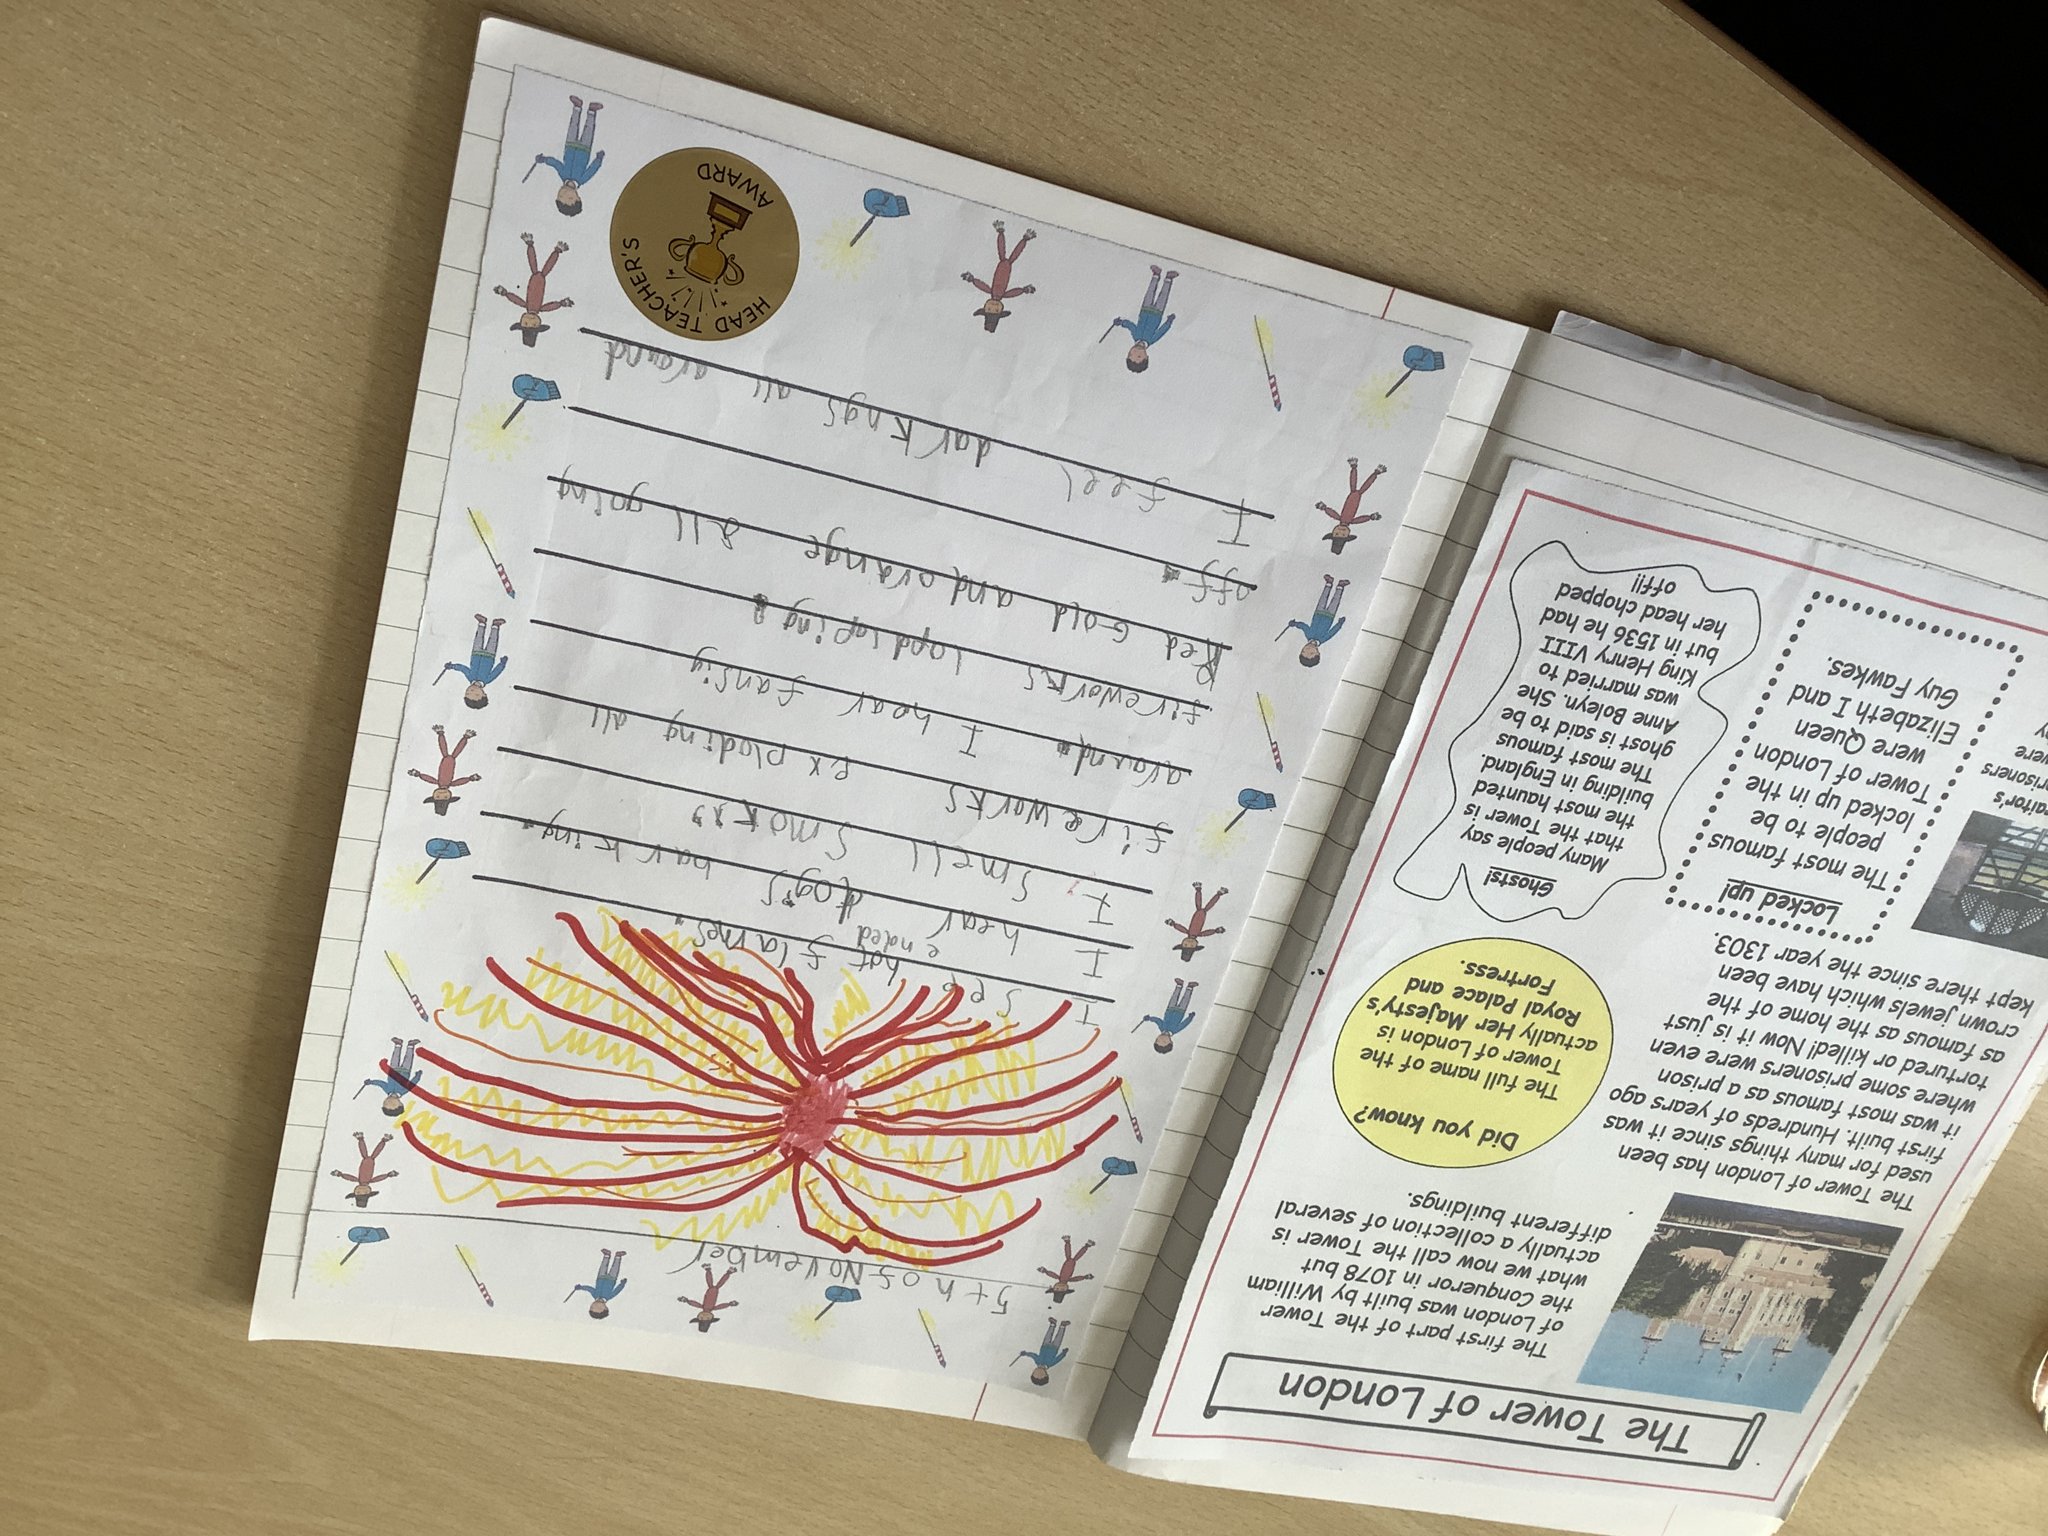 The Tower of London
The first part of the Tower
of London was built by William
the Conqueror in 1078 but
what we now call the Tower is
actually a collection of several
different buildings.
The Tower of London has been
used for many things since it was
first built. Hundreds of years ago
it was most famous as a prison
where some prisoners were even
tortured or killed! Now it is just
as famous as the home of the
crown jewels which have been
kept there since the year 1303.
Did you know?
The full name of the
Tower of London is
actually Her Majesty's
Royal Palace and
Fortress.
Locked up!
The most famous
people to be
locked up in the
Tower of London
were Queen
Elizabeth I and
Guy Fawkes.
Ghosts!
Many people say
that the Tower is
the most haunted
building in England.
The most famous
ghost is said to be
Anne Boleyn. She
was married to
King Henry VIII
but in 1536 he had
her head chopped
off!!
5th of November
I see hot flames
ended
I hear dogs barking
I smell smok
fireworks exploding all
around I hear fansiy
fireworks
Red Gold and orange all going
off
I feel darkngs all around
HEAD TEACHER'S
AWARD